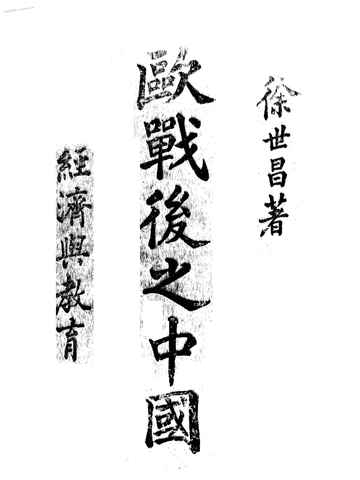 徐世昌著
歐戰後之中國
經濟與教育